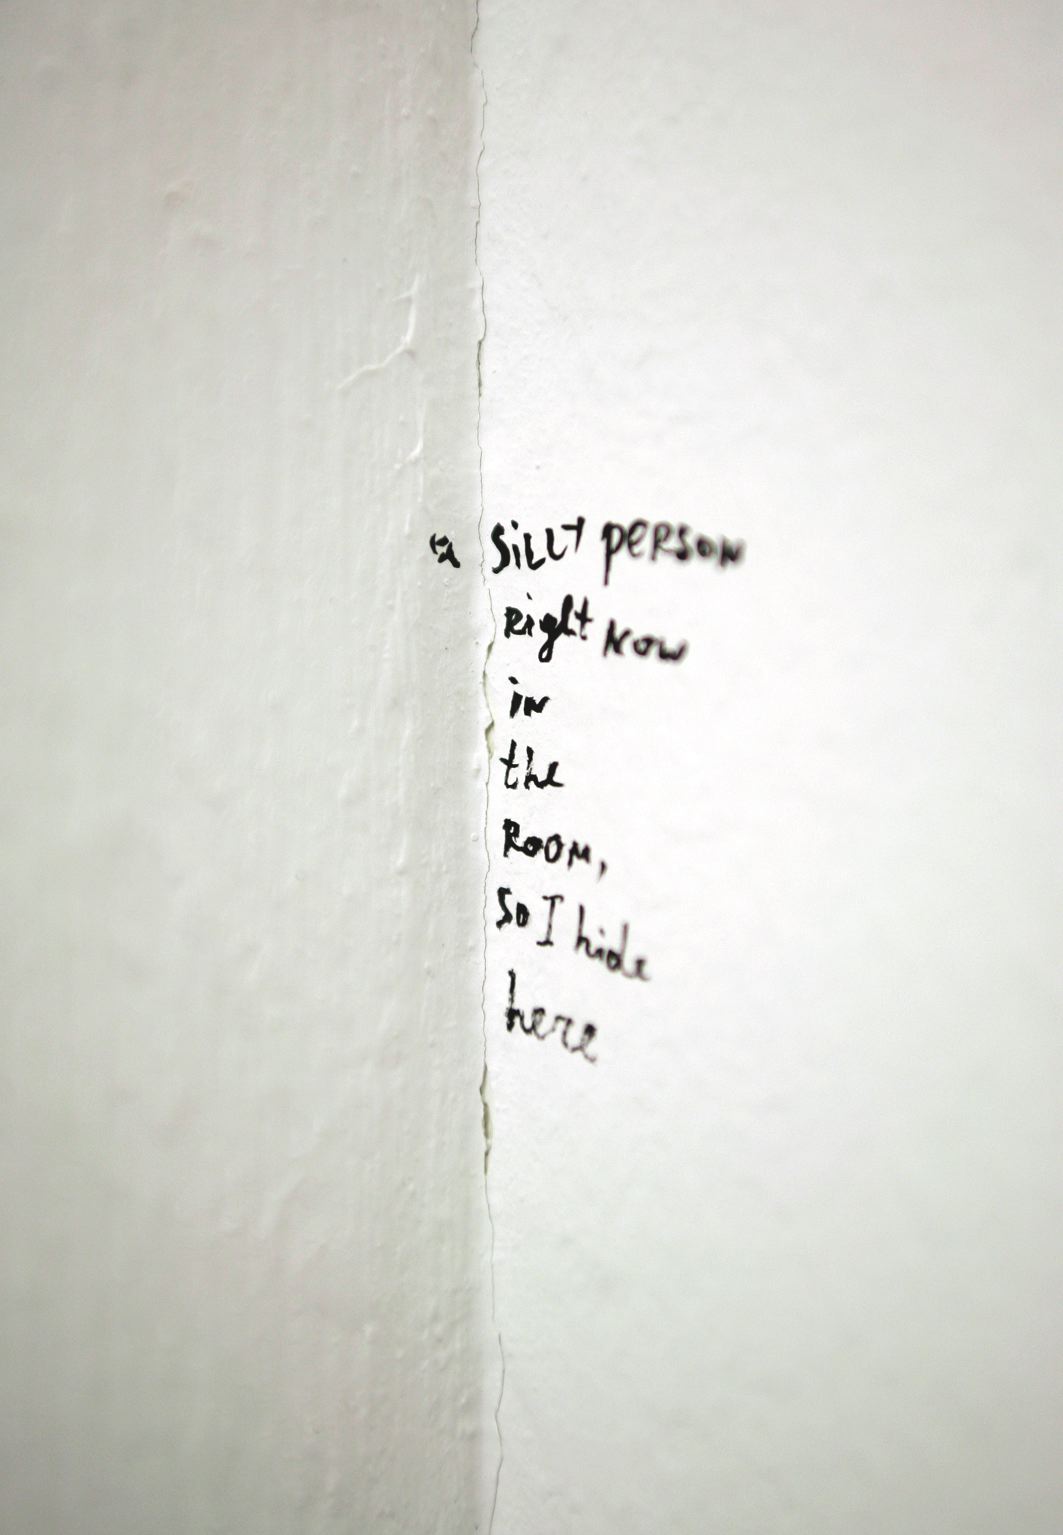 a SiLLY PERSON
Right Now
in
the
RooM,
so I hide
here